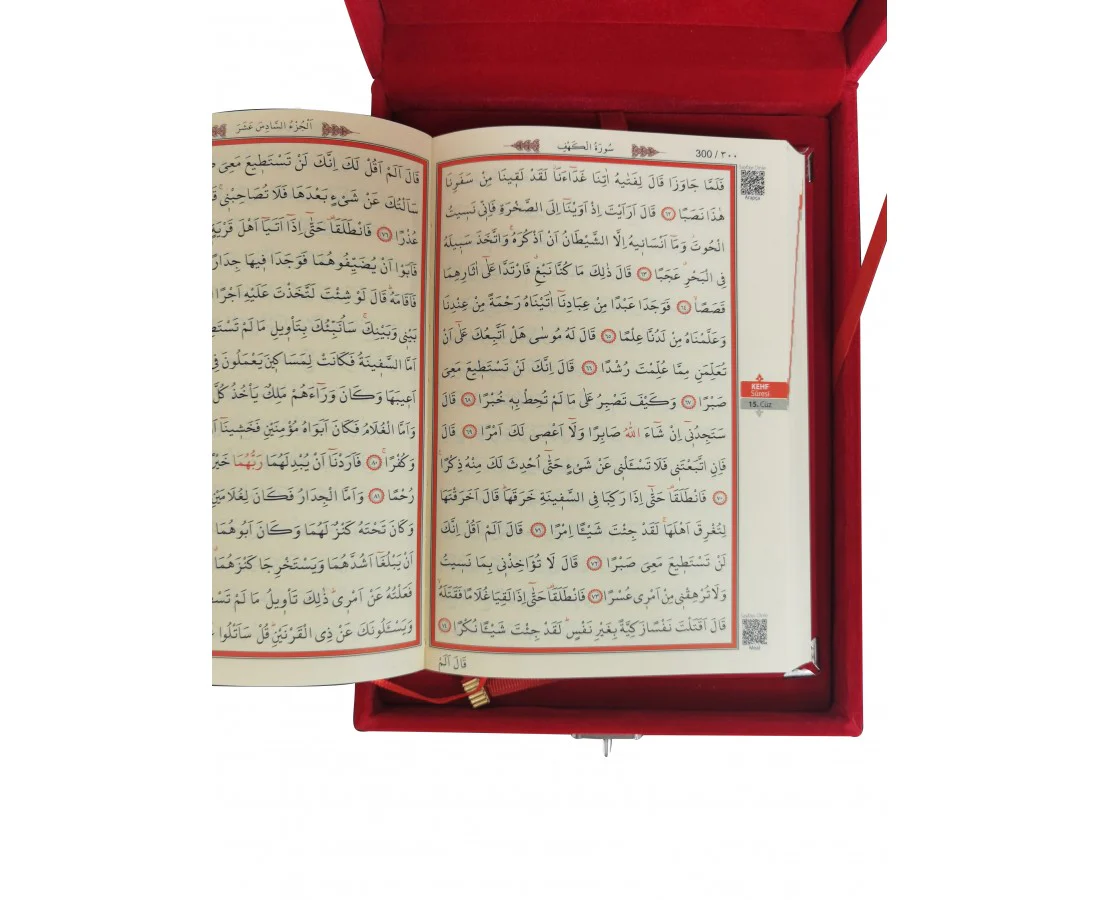 سُورَةُ الْكَهْفِ
300 / ٣٠٠
فَلَمَّا جَاوَزَا قَالَ لِفَتٰيهُ اٰتِنَا غَدَٓاءَنَاۘ لَقَدْ لَق۪ينَا مِنْ سَفَرِنَا
هٰذَا نَصَبًا ﴿٦٢﴾ قَالَ اَرَاَيْتَ اِذْ اَوَيْنَٓا اِلَى الصَّخْرَةِ فَاِنّ۪ي نَس۪يتُ
الْحُوتَۘ وَمَٓا اَنْسَان۪يهُ اِلَّا الشَّيْطَانُ اَنْ اَذْكُرَهُۚ وَاتَّخَذَ سَب۪يلَهُ
فِي الْبَحْرِۗ عَجَبًا ﴿٦٣﴾ قَالَ ذٰلِكَ مَا كُنَّا نَبْغِۗ فَارْتَدَّا عَلٰٓى اٰثَارِهِمَا
قَصَصًاۙ ﴿٦٤﴾ فَوَجَدَا عَبْدًا مِنْ عِبَادِنَٓا اٰتَيْنَاهُ رَحْمَةً مِنْ عِنْدِنَا
وَعَلَّمْنَاهُ مِنْ لَدُنَّا عِلْمًا ﴿٦٥﴾ قَالَ لَهُ مُوسٰى هَلْ اَتَّبِعُكَ عَلٰٓى اَنْ
تُعَلِّمَنِ مِمَّا عُلِّمْتَ رُشْدًا ﴿٦٦﴾ قَالَ اِنَّكَ لَنْ تَسْتَط۪يعَ مَعِيَ
صَبْرًا ﴿٦٧﴾ وَكَيْفَ تَصْبِرُ عَلٰى مَا لَمْ تُحِطْ بِه۪ خُبْرًا ﴿٦٨﴾ قَالَ
سَتَجِدُن۪ٓي اِنْ شَٓاءَ اللّٰهُ صَابِرًا وَلَٓا اَعْص۪ي لَكَ اَمْرًا ﴿٦٩﴾ قَالَ
فَاِنِ اتَّبَعْتَن۪ي فَلَا تَسْـَٔلْن۪ي عَنْ شَيْءٍ حَتّٰٓى اُحْدِثَ لَكَ مِنْهُ ذِكْرًا۟
﴿٧٠﴾ فَانْطَلَقَا۠ حَتّٰٓى اِذَا رَكِبَا فِي السَّف۪ينَةِ خَرَقَهَاۜ قَالَ اَخَرَقْتَهَا
لِتُغْرِقَ اَهْلَهَاۚ لَقَدْ جِئْتَ شَيْـًٔا اِمْرًا ﴿٧١﴾ قَالَ اَلَمْ اَقُلْ اِنَّكَ
لَنْ تَسْتَط۪يعَ مَعِيَ صَبْرًا ﴿٧٢﴾ قَالَ لَا تُؤَاخِذْن۪ي بِمَا نَس۪يتُ
وَلَا تُرْهِقْن۪ي مِنْ اَمْر۪ي عُسْرًا ﴿٧٣﴾ فَانْطَلَقَا۠ حَتّٰٓى اِذَا لَقِيَا غُلَامًا فَقَتَلَهُۙ
قَالَ اَقَتَلْتَ نَفْسًا زَكِيَّةً بِغَيْرِ نَفْسٍۜ لَقَدْ جِئْتَ شَيْـًٔا نُكْرًا ﴿٧٤﴾
قَالَ اَلَمْ
KEHF
Sûresi
15. Cüz
Arapça
Meal
اَلْجُزْءُ السَّادِسَ عَشَرَ
قَالَ اَلَمْ اَقُلْ لَكَ اِنَّكَ لَنْ تَسْتَط۪يعَ مَعِيَ
سَاَلْتُكَ عَنْ شَيْءٍ بَعْدَهَا فَلَا تُصَاحِبْن۪يۚ
عُذْرًا ﴿٧٦﴾ فَانْطَلَقَا۠ حَتّٰٓى اِذَٓا اَتَيَٓا اَهْلَ قَرْيَةٍ
فَاَبَوْا اَنْ يُضَيِّفُوهُمَا فَوَجَدَا ف۪يهَا جِدَارًا
فَاَقَامَهُۜ قَالَ لَوْ شِئْتَ لَتَّخَذْتَ عَلَيْهِ اَجْرًا
بَيْن۪ي وَبَيْنِكَۚ سَاُنَبِّئُكَ بِتَأْو۪يلِ مَا لَمْ
اَمَّا السَّف۪ينَةُ فَكَانَتْ لِمَسَاك۪ينَ يَعْمَلُونَ فِي
اَع۪يبَهَا وَكَانَ وَرَٓاءَهُمْ مَلِكٌ يَأْخُذُ كُلَّ
وَاَمَّا الْغُلَامُ فَكَانَ اَبَوَاهُ مُؤْمِنَيْنِ فَخَش۪ينَٓا
وَكُفْرًاۚ ﴿٨٠﴾ فَاَرَدْنَٓا اَنْ يُبْدِلَهُمَا رَبُّهُمَا
رُحْمًا ﴿٨١﴾ وَاَمَّا الْجِدَارُ فَكَانَ لِغُلَامَيْنِ
وَكَانَ تَحْتَهُ كَنْزٌ لَهُمَا وَكَانَ اَبُوهُمَا
اَنْ يَبْلُغَٓا اَشُدَّهُمَا وَيَسْتَخْرِجَا كَنْزَهُمَا
فَعَلْتُهُ عَنْ اَمْر۪يۜ ذٰلِكَ تَأْو۪يلُ مَا لَمْ
وَيَسْـَٔلُونَكَ عَنْ ذِي الْقَرْنَيْنِۜ قُلْ سَاَتْلُوا